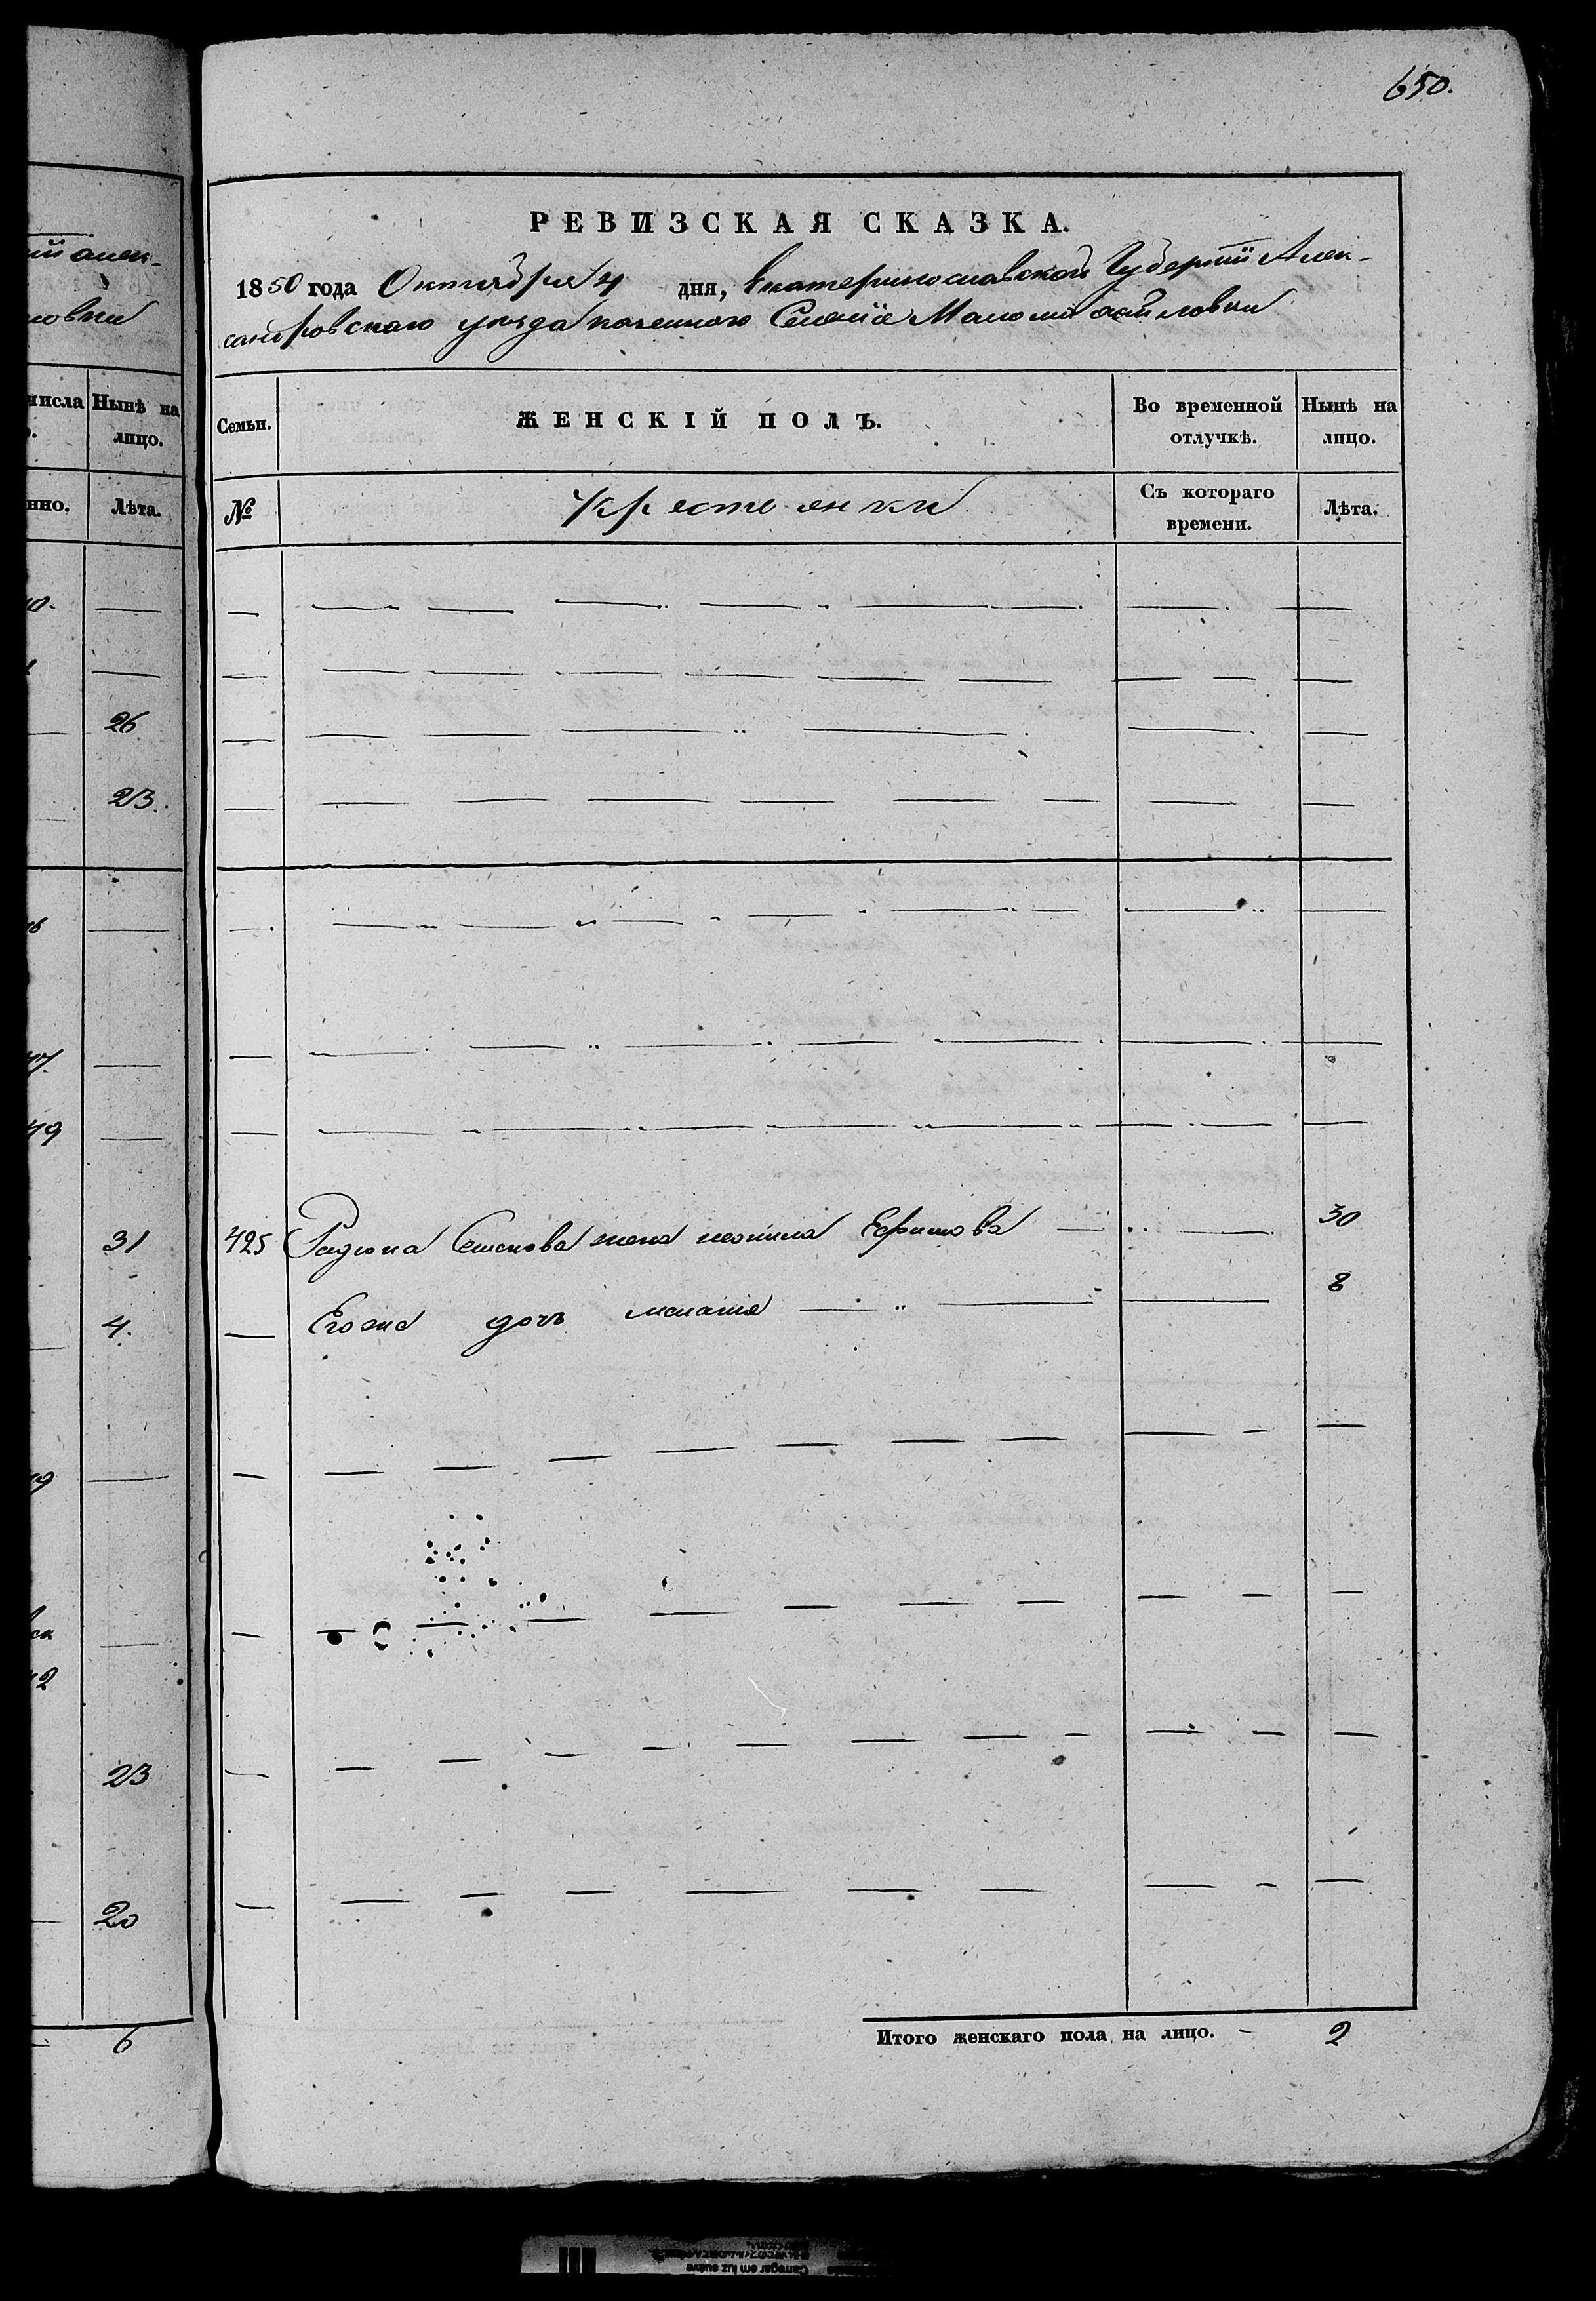 650.
РЕВИЗСКАЯ СКАЗКА.
1850 года Октября 4 дня, Екатеринославской Губернiи Алек-
сандровского уезда казенного Селенiя Маломихайловки
Семьи.
ЖЕНСКIЙ ПОЛЪ.
Во временной
отлучкѣ.
Нынѣ на
лицо.
№
Крестьянки
Съ котораго
времени.
Лѣта.
425 Радиона жена Ефимова 30
Егоже дочь 8
Итого женскаго пола на лицо. 2
ий алек-
ловки
числа
Нынѣ на
лицо.
нно.
Лѣта.
26
23.
31
4.
23
20
6